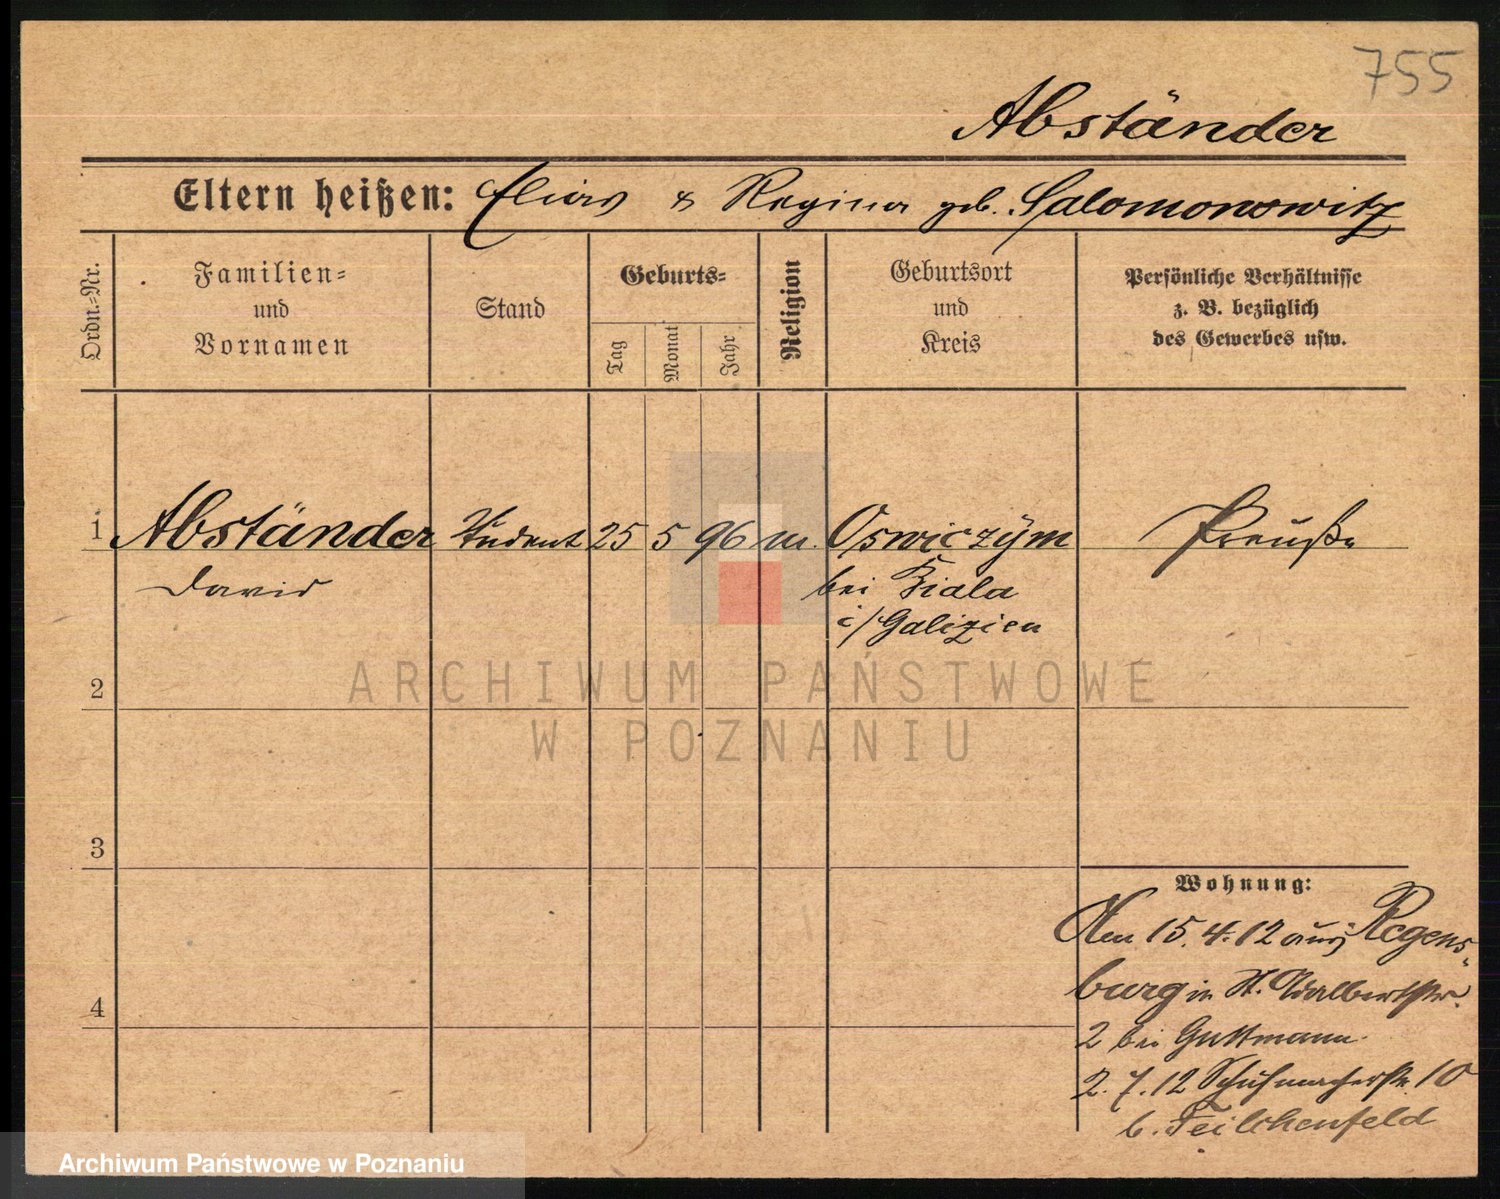 755
Abständer
Eltern heißen: Elias & Regina geb. Salomonowitz
Ordn.-Nr.
Familien-
und
Vornamen
Stand
Geburts-
Tag
Monat
Jahr
Religion
Geburtsort
und
Kreis
Persönliche Verhältnisse
z. B. bezüglich
des Gewerbes usw.
1 Abständer Student 25 5 96 m. Oswiczÿm Preuße
David bei Biala
i/Galizien
ARCHIWUM PAŃSTWOWE
W POZNANIU
2
3
4
Wohnung:
Am 15.4.12 aus Regens-
burg in St. Adalbertstr.
2 bei Guttmann
2.7.12 Schuhmacherstr. 10
b. Feilchenfeld
Archiwum Państwowe w Poznaniu